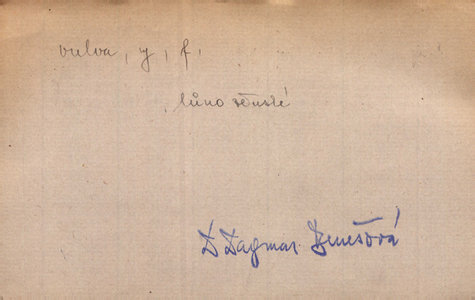 vulva, y, f.
lůno ženské
D Dagmar Benešová